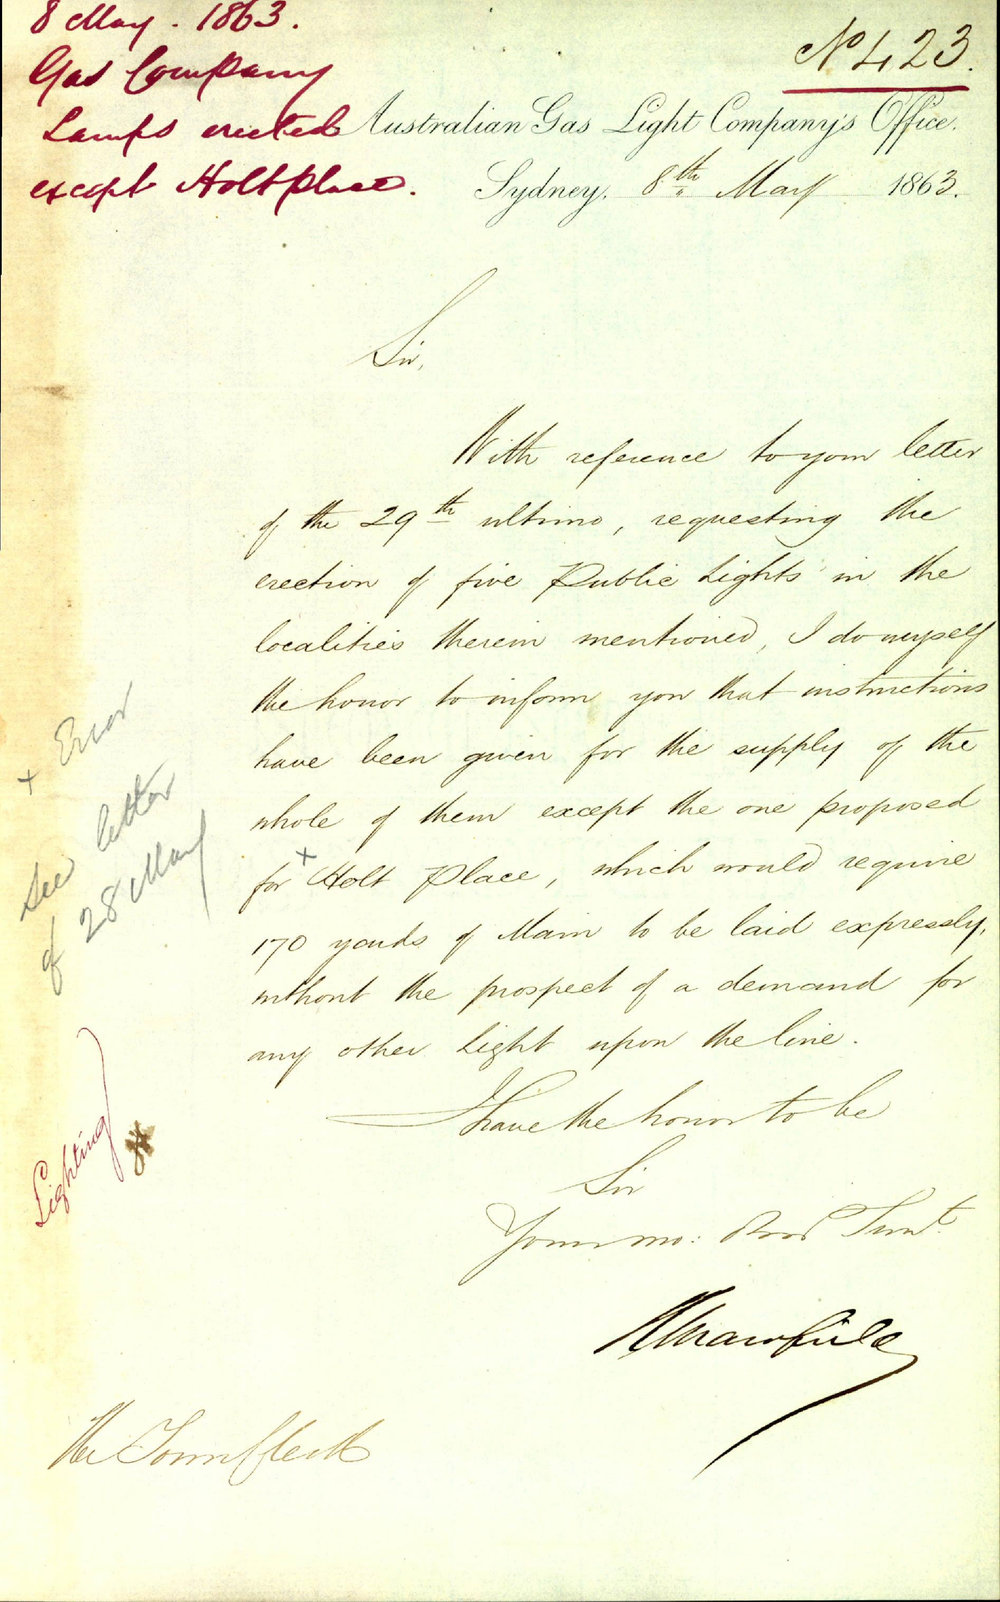 8 May. 1863.
Gas Company
Lamps erected
except Holt place.
No 423.
Australian Gas Light Company's Office.
Sydney. 8th May 1863.
Sir,
With reference to your letter
of the 29th ultimo, requesting the
erection of five Public Lights in the
localities therein mentioned, I do myself
the honor to inform you that instructions
have been given for the supply of the
whole of them except the one proposed
for x Holt Place, which would require
170 yards of Main to be laid expressly,
without the prospect of a demand for
any other Light upon the line.
I have the honor to be
Sir
Your mo: Servt.
The Town Clerk
x Error
See letter
of 28 May
Lighting